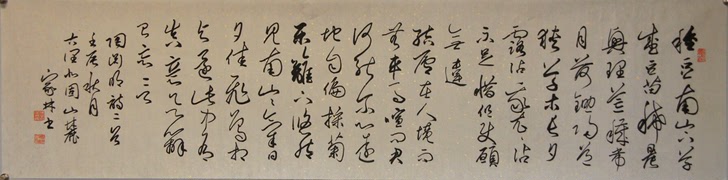 種豆南山下草
盛豆苗稀晨
興理荒穢帶
月荷鋤歸道
狹草木長夕
露沾我衣〻沾
不足惜但使願
無違
結廬在人境而
無車馬喧問君
何能尔心遠
地自偏採菊
東籬下悠然
見南山〻氣日
夕佳飛鳥相
與還此中有
真意欲辯
已忘言
陶渊明詩二首
秋月
山麓
家林書